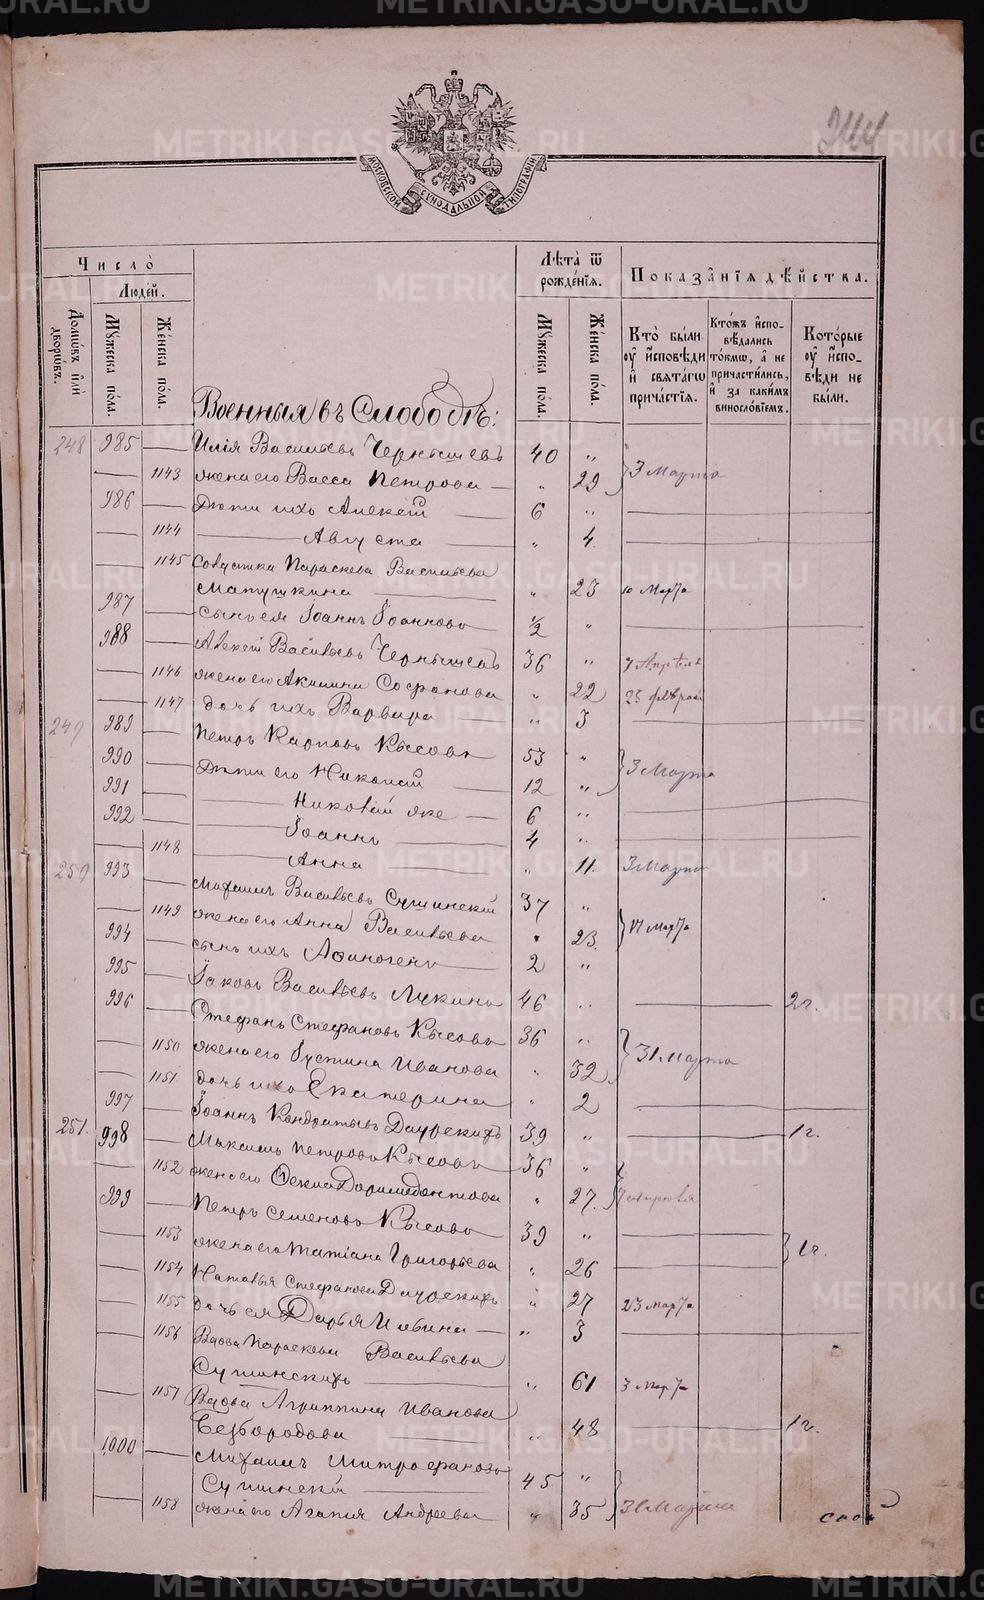 244
МОСКОВСКОЙ СѴНОДАЛЬНОЙ ТИПОГРАФІИ
Число̀
Людей.
Домѡвъ и҆лѝ дворѡвъ.
Мꙋжеска пола.
Же́нска по́ла.
Лѣта̀ ѿ рожде́нїѧ.
Мꙋжеска по́ла.
Же́нска по́ла.
Показа́нїѧ дѣ́йства.
Кто̀ бы́ли оу҆ и҆сповѣди и҆ свѧта́гѡ прича́стїѧ.
Кто́жъ и҆спо-вѣдались то́кмѡ, а҆ не причасти́лись, и҆ за каки́мъ винослѡ́вїемъ.
Кото́рые оу҆ и҆спо-вѣди не бы́ли.
Военныя въ Слободѣ:
248 985 — Илія Васильевъ Чернышевъ 40 „
— 1143 жена его Васса Петрова — „ 29 } 3 Марта
986 — Дѣти ихъ Алексій — 6 „
— 1144 — Августа — „ 4
— 1145 Параскева Васильева
Матушкина — „ 23 10 Марта
987 — сынъ ея Іоаннъ Іоанновъ ½ „
988 — Алексій Васильевъ Чернышевъ 36 „ 7 Апрѣля
— 1146 жена его Акилина Софронова „ 22 25 февраля
— 1147 дочь ихъ Варвара — „ 3
249 989 — Петръ Карповъ Кысовъ 53 „
990 — Дѣти его Николай — 12 „ } 3 Марта
991 — Николай же — 6 „
992 — Іоаннъ 4 „
— 1148 — Анна „ 11. 3 Марта
250 993 — Михаилъ Васильевъ Сушинскій 37 „
— 1149 жена его Анна Васильева „ 23. } 17 Марта
994 — сынъ ихъ Афиногенъ — 2 „
995 — Іаковъ Васильевъ Лукинъ 46 „ — 2 г.
996 — Стефанъ Стефановъ Кысовъ 36 „
— 1150 жена его Іустина Иванова „ 32 } 31 Марта
— 1151 дочь ихъ Екатерина „ 2
997 — Іоаннъ Кондратьевъ Даурскихъ 39 „ — 1 г.
251. 998 — Максимъ Петровъ Кысовъ 36 „
— 1152 жена его Фекла „ 27. } 7 апрѣля
999 — Петръ Семеновъ Кысовъ 39 „
— 1153 жена его Татіана Григорьева „ 26 } 1 г.
— 1154 Наталья Стефанова Даурскихъ „ 27 23 Марта
— 1155 дочь ея Дарья Ильина — „ 3
— 1156 Вдова Параскева Васильева
Сушинскихъ — „ 61 3 Марта
— 1157 Вдова Агриппина Иванова
Безбородова „ 48 — 1 г.
1,000 — Михаилъ Митрофановъ
Сушинскій — 45 „
— 1158 жена его Агапія Андреева „ 35 } 31 Марта
METRIKI.GASO-URAL.RU